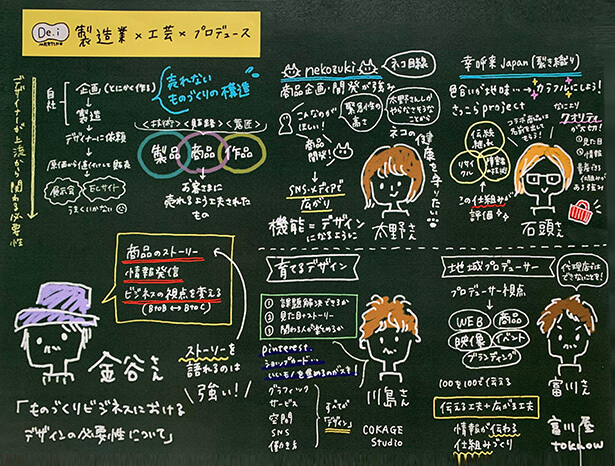 De.i
MEETING
製造業×工芸×プロデュース
デザイナーが上流から関わる必要性
自社
企画(とにかく作る)
製造
デザイナーに依頼
売れない
ものづくりの構造
展示会
ECサイト
うまくいかない
製品
商品
作品
お客さまに
売れるよう工夫された
もの
商品のストーリー
情報発信
ビジネスの視点を考える
(BtoB ↔ BtoC)
金谷さん
ストーリーを
語れるのは
強い!
「ものづくりビジネスにおける
デザインの必要性について」
nekozuki
ネコ目線
商品企画・開発が強み
こんなのが
ほしい!
緊急性の
高さ
太野さんしか
やらなさそうな
ことから
商品
開発!
SNS・メディアで
広がり
ネコの
健康を守りたい
機能=デザイン
になるように
太野さん
幸呼来Japan(裂き織り)
カラフルにしよう!
さっこらproject
クオリティ
が大切!
伝統
継承
リサイクル
この仕組みが
評価
石頭さん
育てるデザイン
① 課題解決できるか
② 見た目+ストーリー
③ 関わる人が楽めるか
pinterest
いいモノを集めるのがスキ!
グラフィック
サービス
空間
SNS
働き方
すべてが
「デザイン」
川島さん
COKAGE
Studio
地域プロデューサー
代理店では
できないことを!
プロデューサー視点
WEB
商品
映像
イベント
ブランディング
100を100で伝える
伝える工夫+広がる工夫
情報が伝わる
仕組みづくり
富川さん
富川屋
toknow